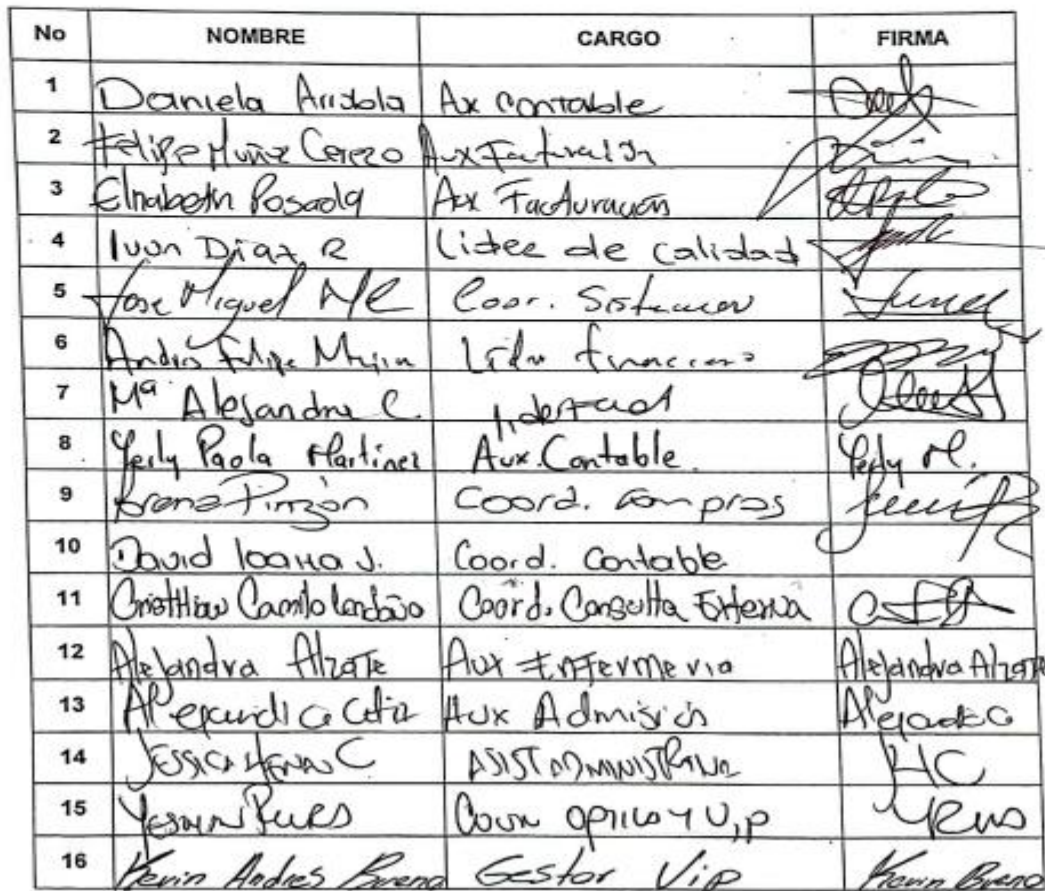 No NOMBRE CARGO FIRMA
1 Daniela Arisbla Ax contable
2 Felipe Muñoz Cerezo Aux Facturación
3 Elizabeth Posada Aux Facturación
4 Ivon Diaz R Lider de calidad
5 Jose Miguel Coor. Sistemas
6 Andrés Felipe Mejia Lider financiero
7 Mª Alejandra C.
8 Yerly Paola Martinez Aux. Contable Yerly M.
9 Lorena Pinzón Coord. Compras
10 David J. Coord. Contable
11 Cristhian Camilo Londoño Coord. Consulta Externa
12 Alejandra Alzate Aux Enfermeria Alejandra Alzate
13 Aux Admisión
14 JESSICA HENAO C ASIST ADMINISTRATIVA JHC
15 Coor optica y Vip
16 Kevin Andres Bueno Gestor Vip Kevin Bueno